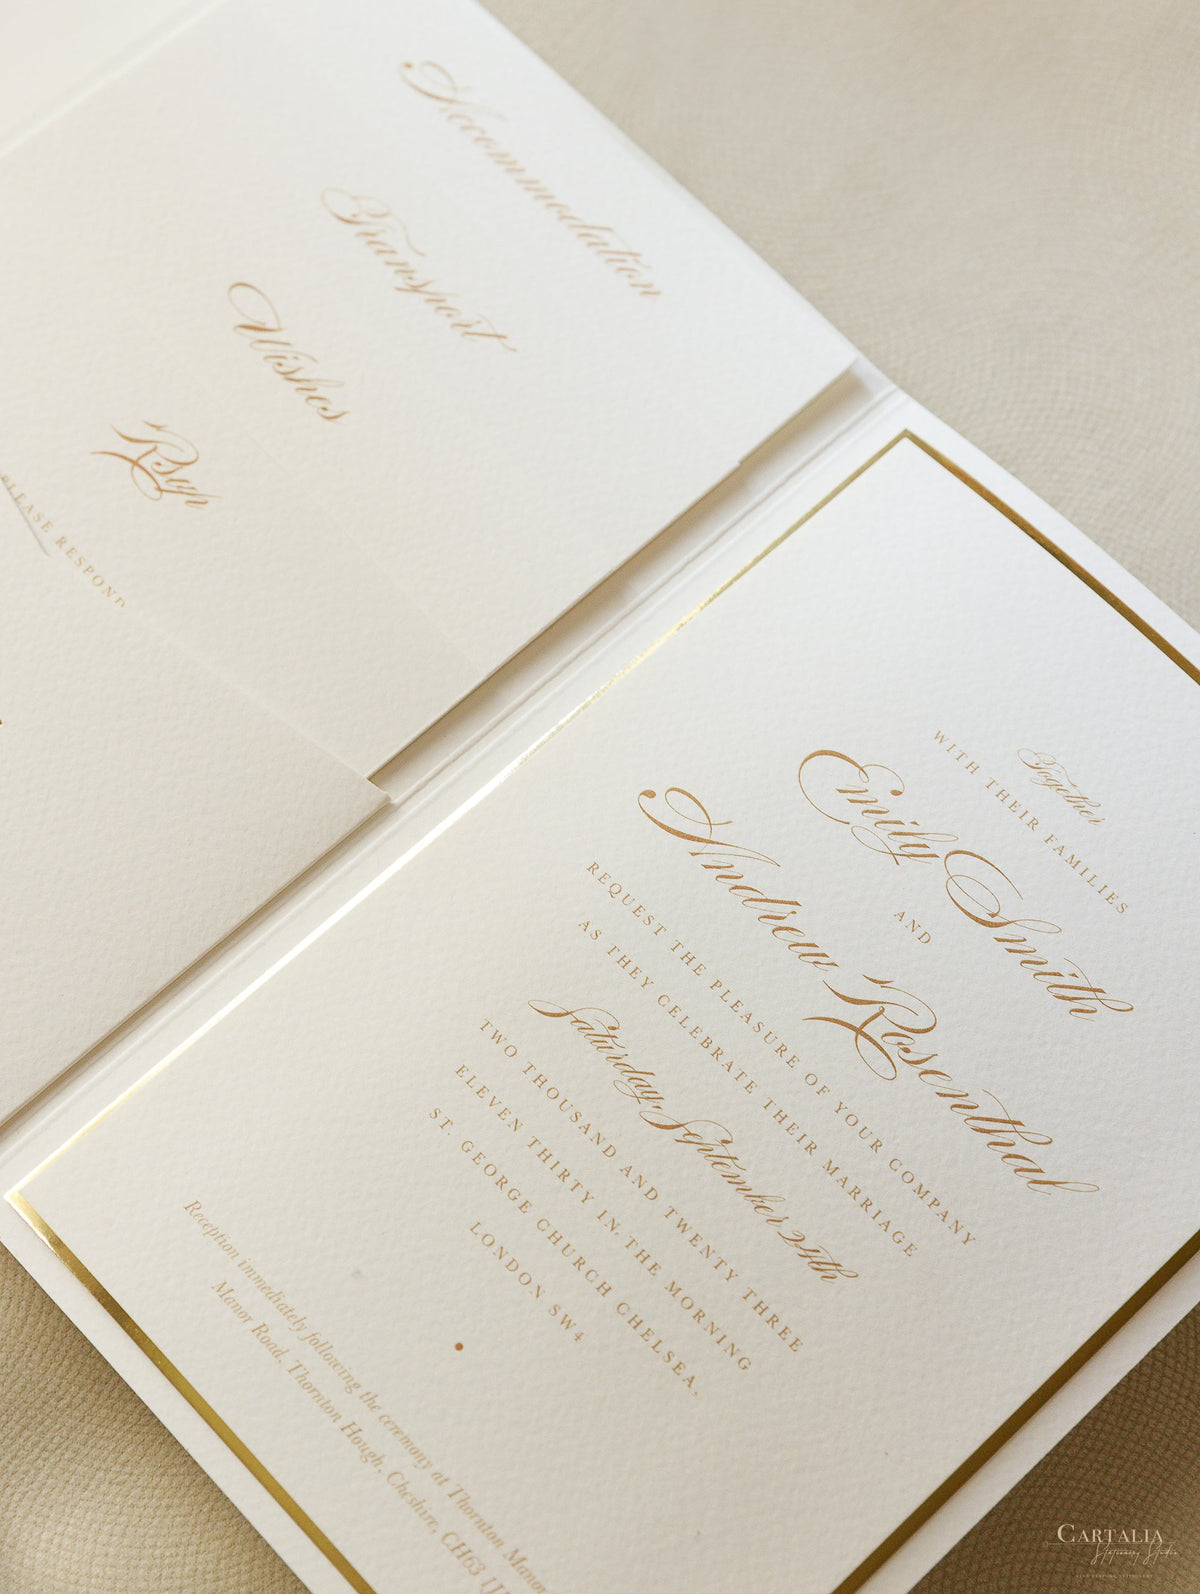 Accommodation
Transport
Wishes
Rsvp
PLEASE RESPOND
Together
WITH THEIR FAMILIES
Emily Smith
AND
Andrew Rosenthal
REQUEST THE PLEASURE OF YOUR COMPANY
AS THEY CELEBRATE THEIR MARRIAGE
Saturday, September 24th
TWO THOUSAND AND TWENTY THREE
ELEVEN THIRTY IN THE MORNING
ST. GEORGE CHURCH CHELSEA,
LONDON SW4
Reception immediately following the ceremony at Thornton Manor
Manor Road, Thornton Hough, Cheshire, CH63 1J
CARTALIA
Stationery Studio